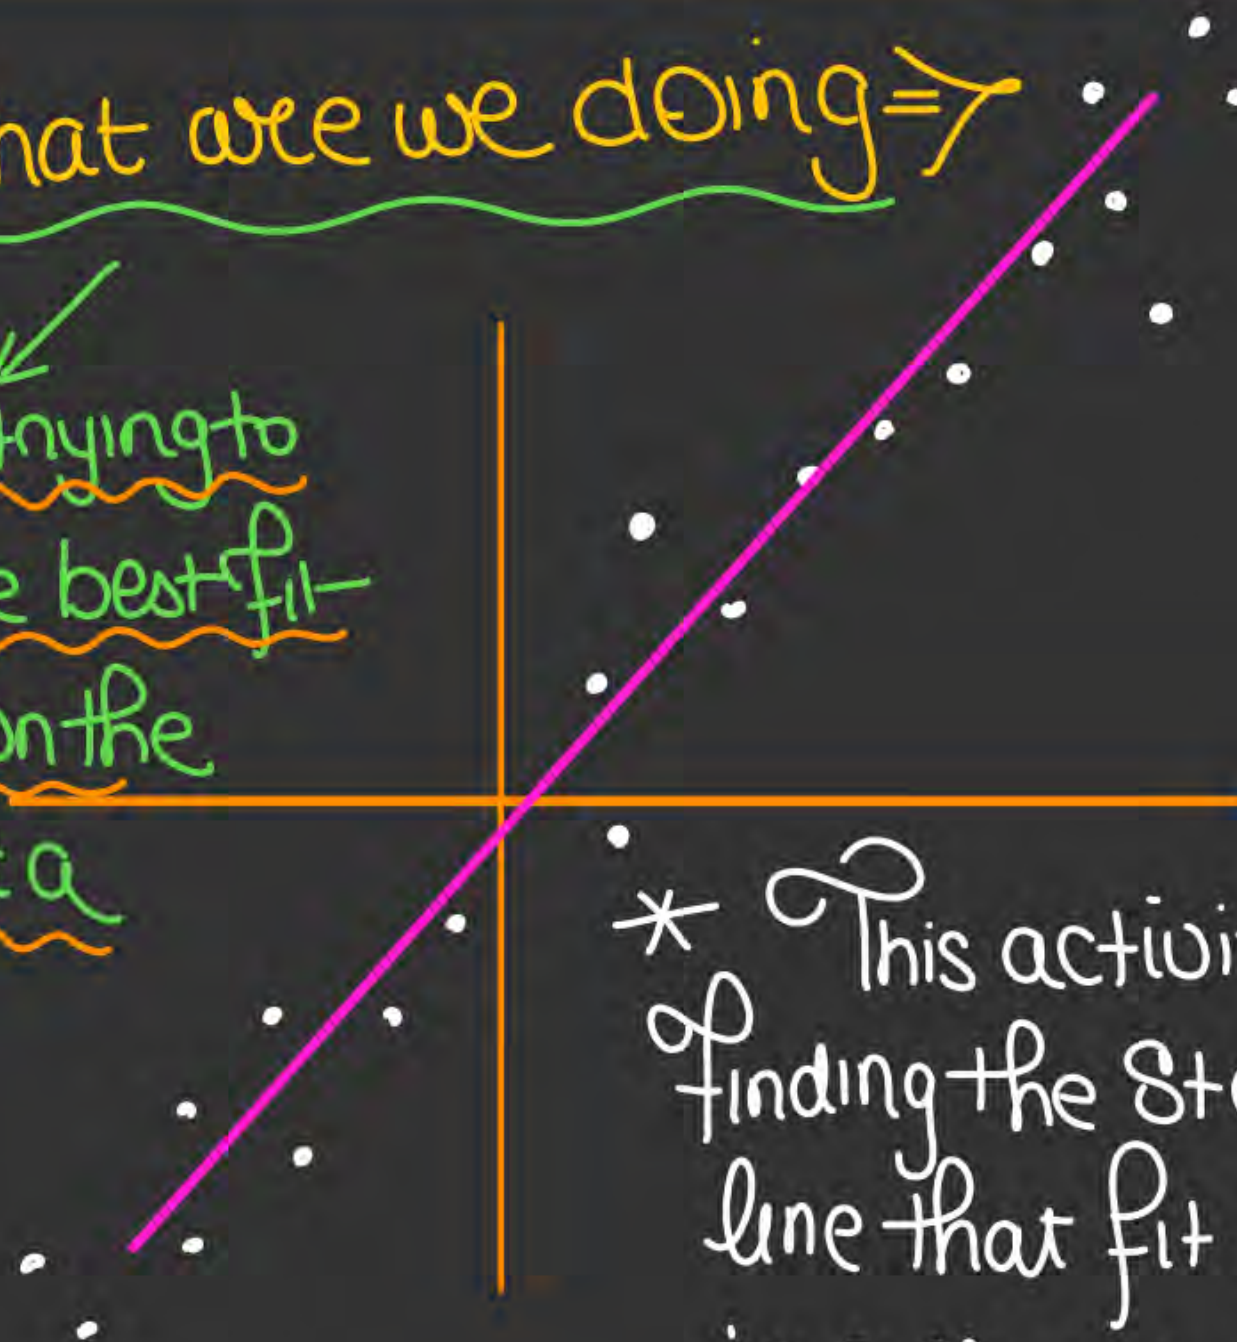 hat are we doing =>
trying to
e best fit
on the
a
* This activi
finding the St
line that fit